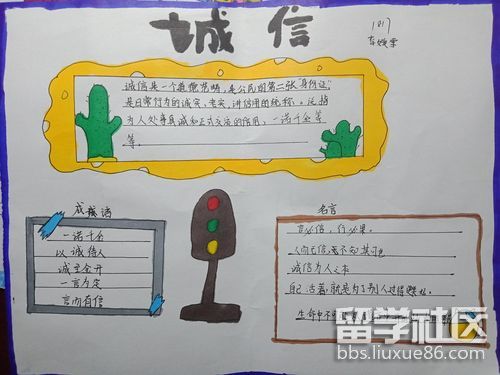 诚信
1817
诚信是一个道德范畴，是公民的第二张"身份证"，
是日常行为的诚实、忠实、讲信用的统称。泛指
为人处事真诚和正式交流的信用，一诺千金等
等。
成语
一诺千金
以诚待人
诚至金开
一言为定
言而有信
名言
言必信，行必果。
人而无信，不知其可也
诚信为人之本
自己活着，就是为了别人过得
生命中不
留学社区
bbs.liuxue86.com